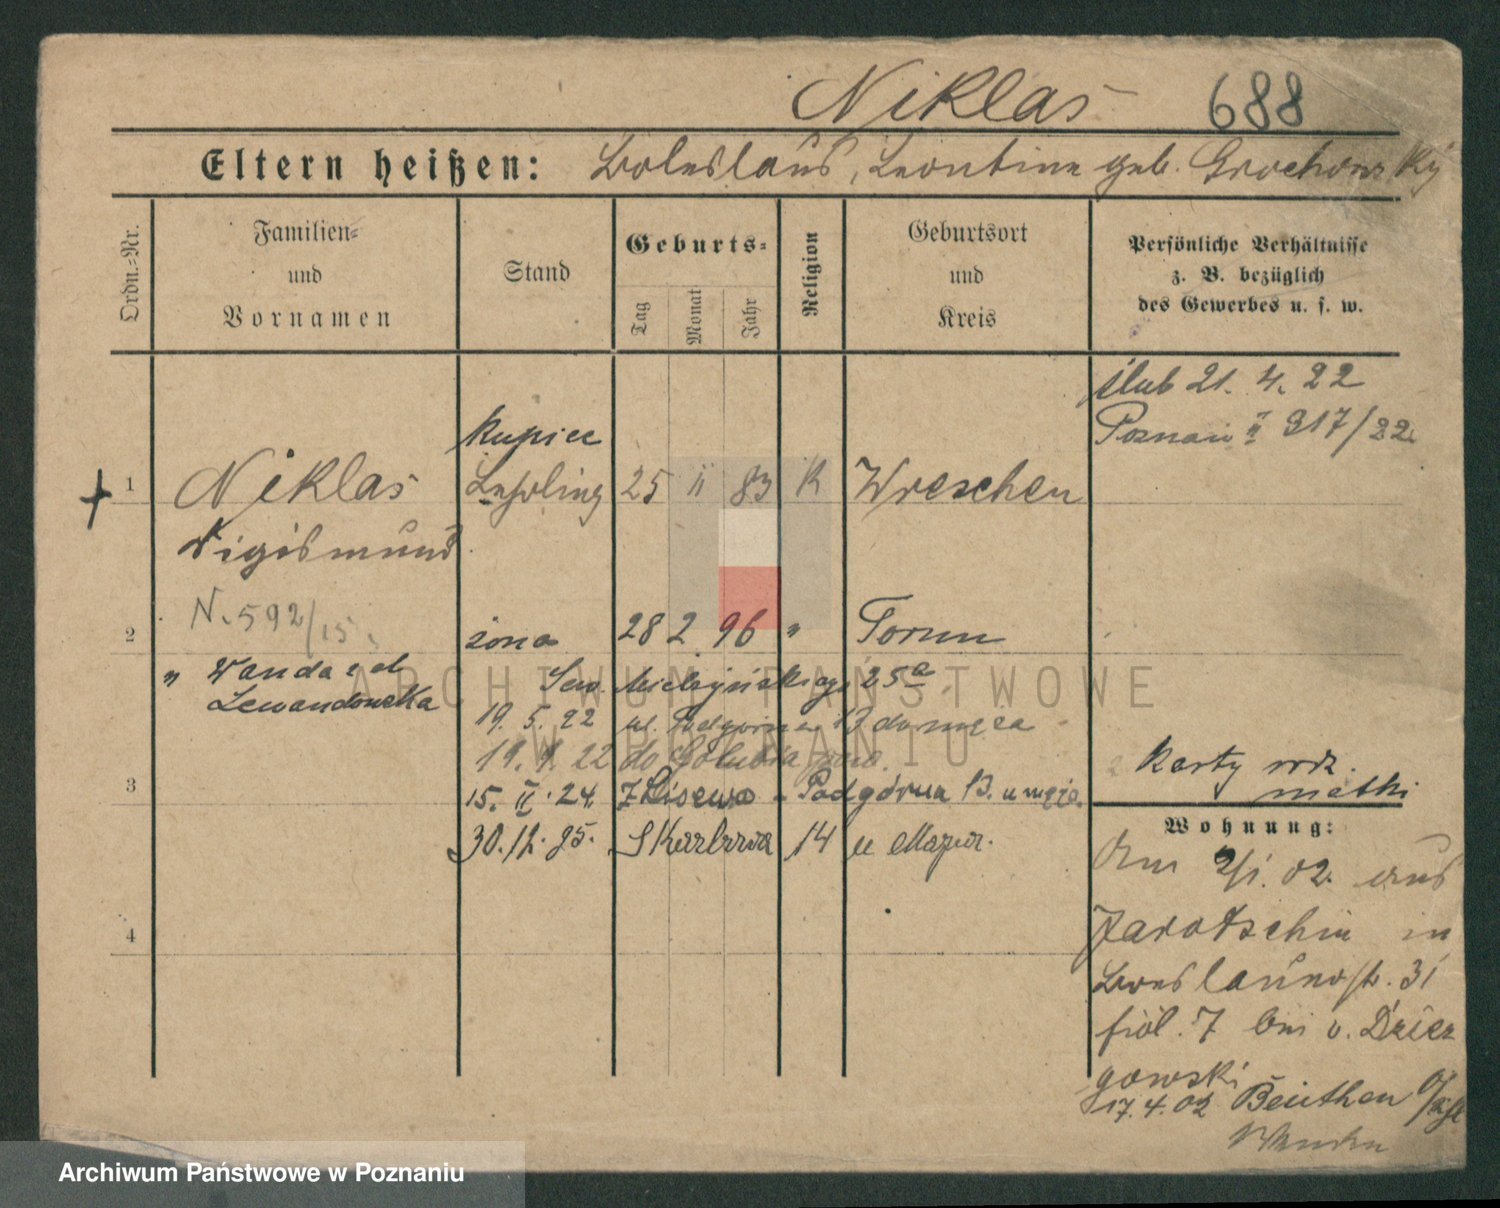 Niklas 688
Eltern heißen: Boleslaus, Leontine geb. Grochowsky
Ordn.-Nr.
Familien-
und
Vornamen
Stand
Geburts-
Tag
Monat
Jahr
Religion
Geburtsort
und
Kreis
Persönliche Verhältnisse
z. B. bezüglich
des Gewerbes u. s. w.
ślub 21. 4. 22
Poznań II 317/22
kupiec
1 Niklas Lehrling 25 II 83 K Wreschen
Sigismund
N. 592/15.
2 żona 28 2 96 " Toruń
" Wanda z d. Lewandowska
Sew. Mielżyńskiego 25a
19. 5. 22 ul. Podgórna 13 do męża
19. 9. 22 do Golubia
3 15. II. 24. Z Lisewo - Podgórna 13. u męża.
30. 12. 25. Skarbowa 14 u Mazur.
4
karty rodz.
matki
Wohnung:
Am 2/1. 02. aus
Jarotschin in
Breslauerstr. 31
7 bei v. Dzier
gowski
17. 4. 02 Beuthen O/Schl
ARCHIWUM PAŃSTWOWE
W POZNANIU
Archiwum Państwowe w Poznaniu